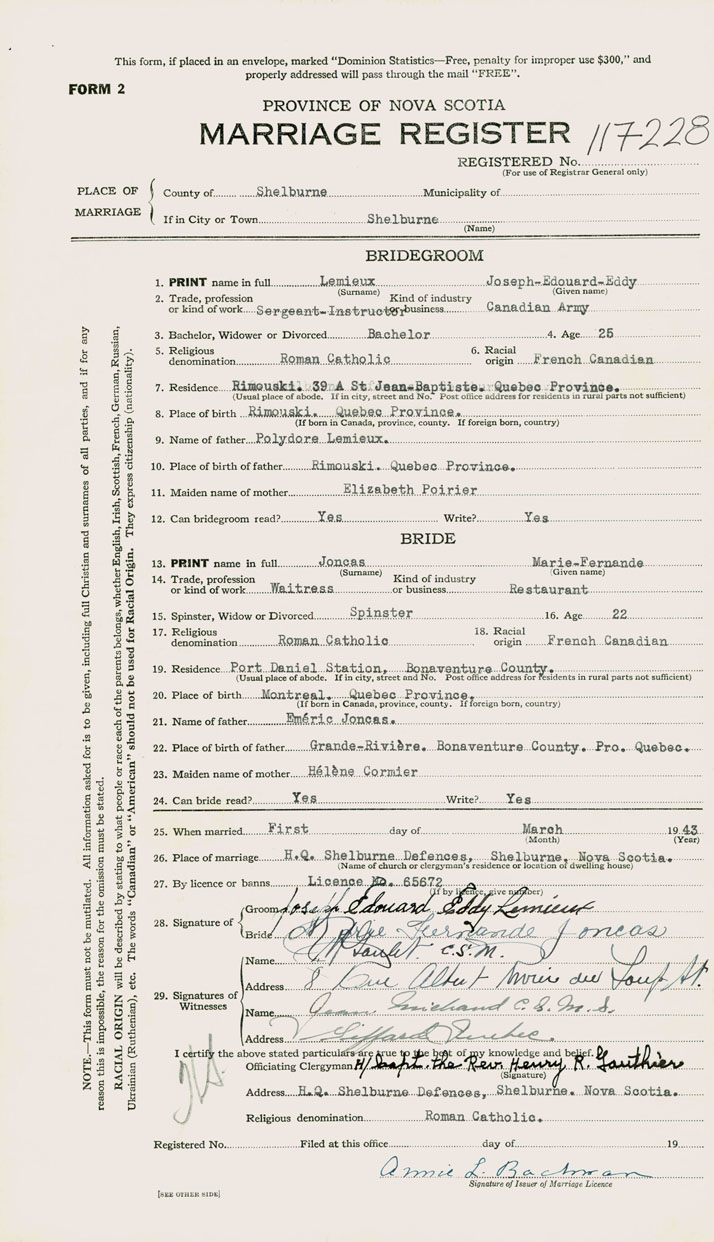 This form, if placed in an envelope, marked “Dominion Statistics—Free, penalty for improper use $300,” and
properly addressed will pass through the mail “FREE”.
FORM 2
PROVINCE OF NOVA SCOTIA
MARRIAGE REGISTER 117228
REGISTERED No.
(For use of Registrar General only)
PLACE OF MARRIAGE
County of Shelburne Municipality of
If in City or Town Shelburne
(Name)
BRIDEGROOM
1. PRINT name in full Lemieux Joseph-Edouard-Eddy
(Surname) (Given name)
2. Trade, profession or kind of work Sergeant-Instructor Kind of industry or business Canadian Army
3. Bachelor, Widower or Divorced Bachelor 4. Age 25
5. Religious denomination Roman Catholic 6. Racial origin French Canadian
7. Residence Rimouski. 39 A St Jean-Baptiste. Quebec Province.
(Usual place of abode. If in city, street and No. Post office address for residents in rural parts not sufficient)
8. Place of birth Rimouski. Quebec Province.
(If born in Canada, province, county. If foreign born, country)
9. Name of father Polydore Lemieux.
10. Place of birth of father Rimouski. Quebec Province.
11. Maiden name of mother Elizabeth Poirier
12. Can bridegroom read? Yes Write? Yes
BRIDE
13. PRINT name in full Joncas Marie-Fernande
(Surname) (Given name)
14. Trade, profession or kind of work Waitress Kind of industry or business Restaurant
15. Spinster, Widow or Divorced Spinster 16. Age 22
17. Religious denomination Roman Catholic 18. Racial origin French Canadian
19. Residence Port Daniel Station, Bonaventure County.
(Usual place of abode. If in city, street and No. Post office address for residents in rural parts not sufficient)
20. Place of birth Montreal. Quebec Province.
(If born in Canada, province, county. If foreign born, country)
21. Name of father Eméric Joncas.
22. Place of birth of father Grande-Rivière. Bonaventure County. Pro. Quebec.
23. Maiden name of mother Hélène Cormier
24. Can bride read? Yes Write? Yes
25. When married First day of March 1943
(Month) (Year)
26. Place of marriage H.Q. Shelburne Defences, Shelburne, Nova Scotia.
(Name of church or clergyman's residence or location of dwelling house)
27. By licence or banns Licence No. 65672
(If by licence, give number)
28. Signature of
Groom Joseph Edouard Eddy Lemieux
Bride Fernande Joncas
29. Signatures of Witnesses
Name C.S.M.
Address 8 Rue Albert du Loup St.
Name Michaud C.S.M.S.
Address Giffard Quebec.
I certify the above stated particulars are true to the best of my knowledge and belief.
Officiating Clergyman H/Capt. the Rev. Henry R. Gauthier
(Signature)
Address H.Q. Shelburne Defences, Shelburne. Nova Scotia.
Religious denomination Roman Catholic.
Registered No. Filed at this office day of 19
Annie L. Bachman
Signature of Issuer of Marriage Licence
[SEE OTHER SIDE]
NOTE.—This form must not be mutilated. All information asked for is to be given, including full Christian and surnames of all parties, and if for any
reason this is impossible, the reason for the omission must be stated.
RACIAL ORIGIN will be described by stating to what people or race each of the parents belongs, whether English, Irish, Scottish, French, German, Russian,
Ukrainian (Ruthenian), etc. The words “Canadian” or “American” should not be used for Racial Origin. They express citizenship (nationality).